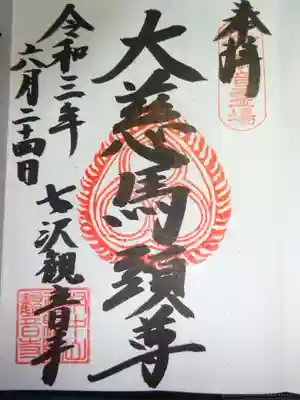 奉拝
大慈馬頭尊
令和三年
六月二十四日
七沢観音寺